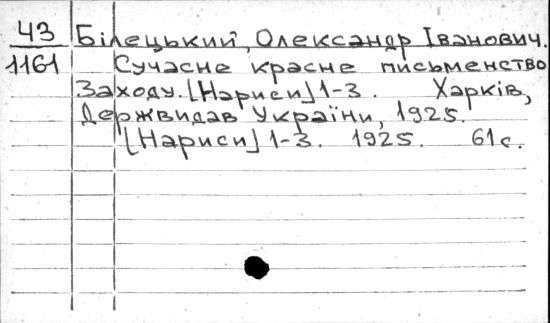 43 Білецький, Олександр Іванович.
1161 Сучасне красне письменство
Заходу. [Нариси] 1-3. Харків,
Держвидав України, 1925.
[Нариси] 1-3. 1925. 61с.